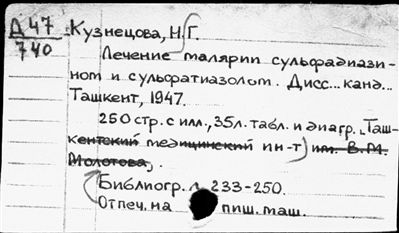 Д 47
740
Кузнецова, Н.Г.
Лечение малярии сульфадиази-
ном и сульфатиазолом. Дисс... канд...
Ташкент, 1947.
250 стр. с илл., 35 л. табл. и диагр. (Таш-
кентский медицинский ин-т) им. В.М.
Молотова).
Библиогр. л. 233-250.
Отпеч. на пиш. маш.